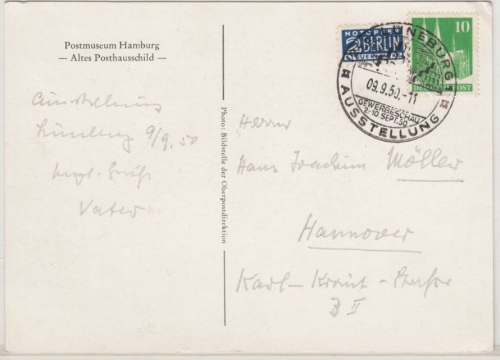 Postmuseum Hamburg
— Altes Posthausschild —
Ausstellung
Lüneburg 9/9.50
Vater
Photo: Bildstelle der Oberpostdirektion
NOTOPFER
2 BERLIN
STEUERMARKE
10
DEUTSCHE POST
LÜNEBURG
09.9.50.-11
GEWERBESCHAU
2-10 SEPT. 50
AUSSTELLUNG
Herrn
Hans Joachim Möller
Hannover
Karl-Kraut-Straße